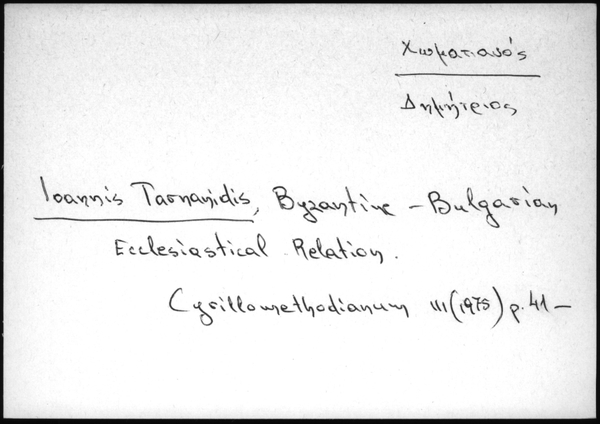 Χωματιανός
Δημήτριος
Ioannis Tarnanidis, Byzantine - Bulgarian
Ecclesiastical Relation.
Cyrillomethodianum III (1975) p. 41 -